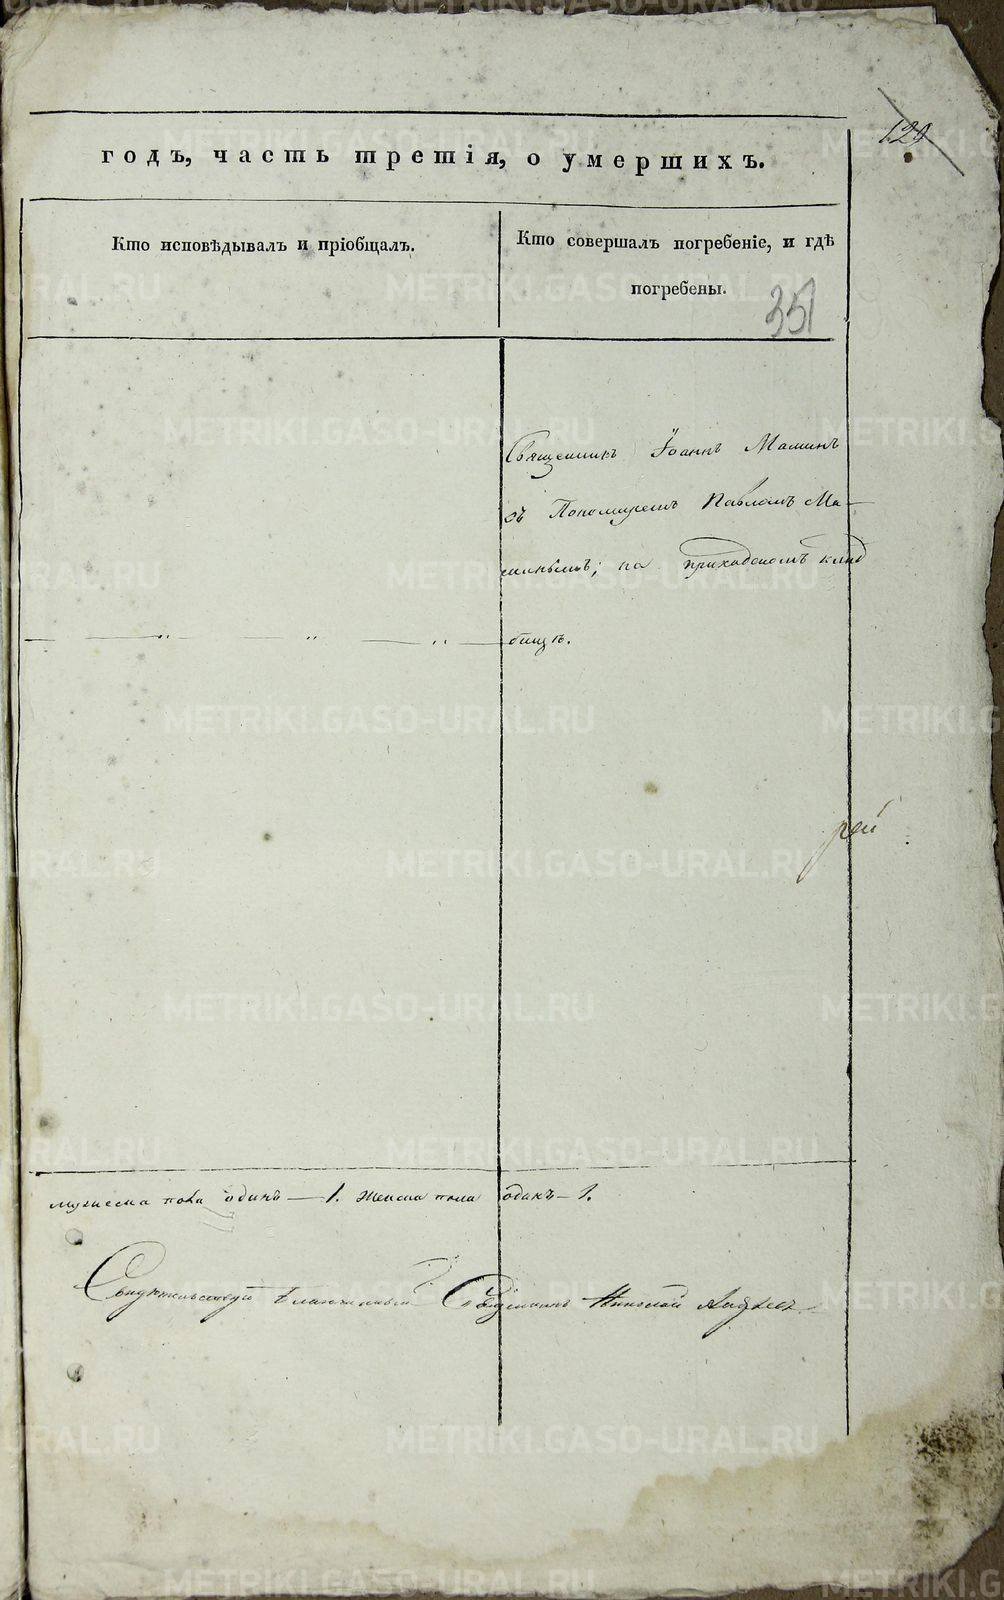 129
годъ, часть третія, о умершихъ.
Кто исповѣдывалъ и пріобщалъ.
Кто совершалъ погребеніе, и гдѣ
погребены.
351
Священникъ Іоаннъ Маминъ
съ Пономаремъ Павломъ Ма-
минымъ; на приходскомъ клад
бищѣ.
рей
мужеска пола одинъ — 1. Женска пола одна — 1.
Свидѣтельствуй Благочинный Священникъ Николай
METRIKI.GASO-URAL.RU